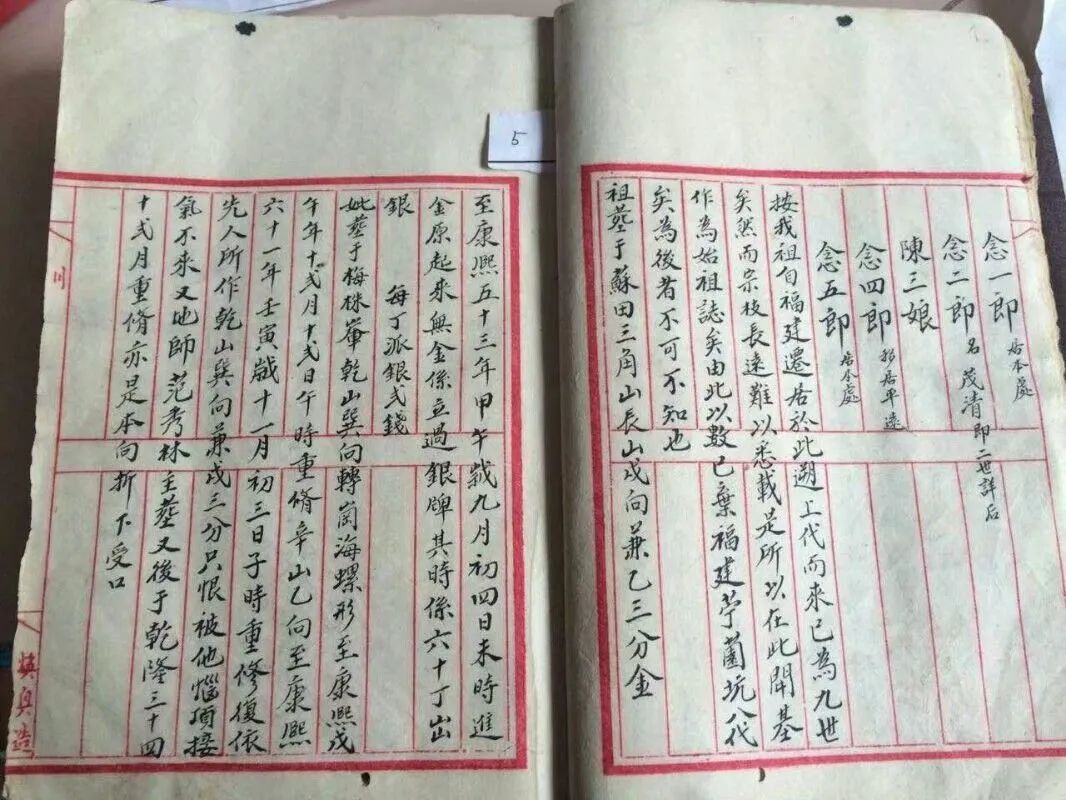 念一郎 居本處
念二郎 名茂清即二世詳后
陳三娘
念四郎 移居平遠
念五郎 居本處
按我祖自福建遷居於此遡上代而來已為九世
矣然而宗枝長遠難以悉載是所以在此開基
作為始祖誌矣由此以數已棄福建苧蔔坑八代
矣為後者不可不知也
祖塟于蘇田三角山長山戌向兼乙三分金
5
至康熙五十三年甲午歲九月初四日未時進
金原起來無金係立過銀牌其時係六十丁出
銀 每丁派銀弍錢
妣塟于梅株崋乾山巽向轉崗海螺形至康熙戊
午年十弍月十弍日午時重脩辛山乙向至康熙
六十一年壬寅歲十一月初三日子時重修復依
先人所作乾山巽向兼戌三分只恨被他惱頂接
氣不来又地師范考林主塟又後于乾隆三十四
十弍月重脩亦是本向折下受口
川
煥真造